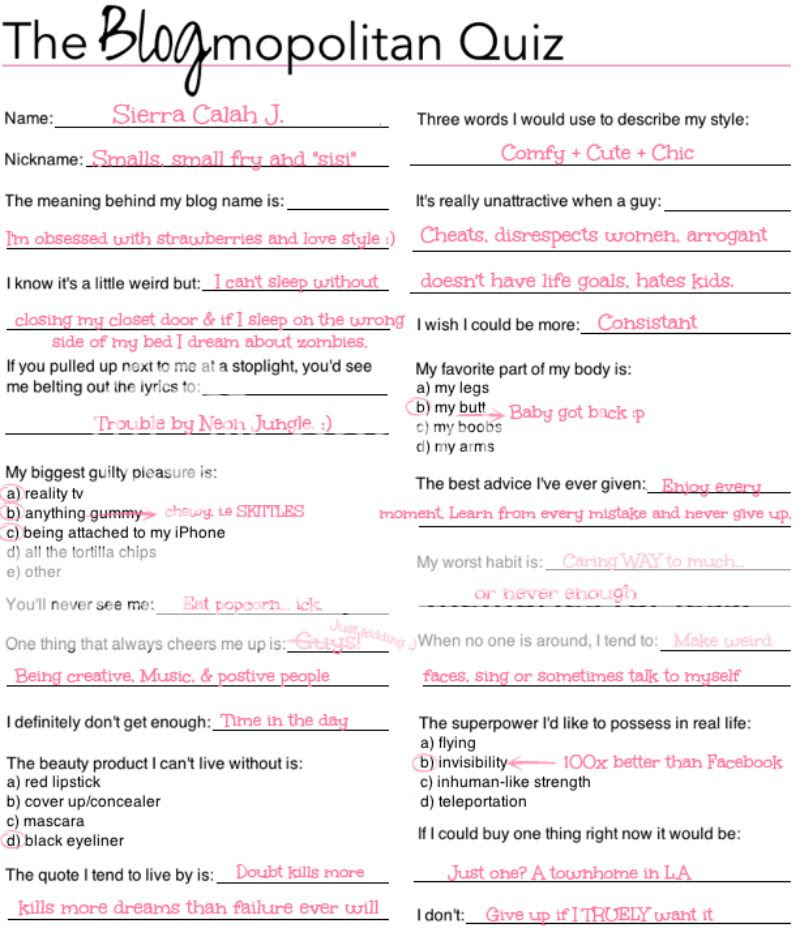 The Blogmopolitan Quiz
Name: Sierra Calah J.
Nickname: Smalls, small fry and "sisi"
The meaning behind my blog name is:
I'm obsessed with strawberries and love style :)
I know it's a little weird but: I can't sleep without
closing my closet door & if I sleep on the wrong
side of my bed I dream about zombies.
If you pulled up next to me at a stoplight, you'd see
me belting out the lyrics to:
Trouble by Neon Jungle. :)
My biggest guilty pleasure is:
a) reality tv
b) anything gummy chewy, i.e SKITTLES
c) being attached to my iPhone
d) all the tortilla chips
e) other
You'll never see me: Eat popcorn... ick.
One thing that always cheers me up is: Guys! Just kidding ;)
Being creative, Music, & postive people
I definitely don't get enough: Time in the day
The beauty product I can't live without is:
a) red lipstick
b) cover up/concealer
c) mascara
d) black eyeliner
The quote I tend to live by is: Doubt kills more
kills more dreams than failure ever will
Three words I would use to describe my style:
Comfy + Cute + Chic
It's really unattractive when a guy:
Cheats, disrespects women, arrogant
doesn't have life goals, hates kids.
I wish I could be more: Consistant
My favorite part of my body is:
a) my legs
b) my butt Baby got back :p
c) my boobs
d) my arms
The best advice I've ever given: Enjoy every
moment, Learn from every mistake and never give up.
My worst habit is: Caring WAY to much...
or never enough
When no one is around, I tend to: Make weird
faces, sing or sometimes talk to myself
The superpower I'd like to possess in real life:
a) flying
b) invisibility 100x better than Facebook
c) inhuman-like strength
d) teleportation
If I could buy one thing right now it would be:
Just one? A townhome in LA
I don't: Give up if I TRUELY want it